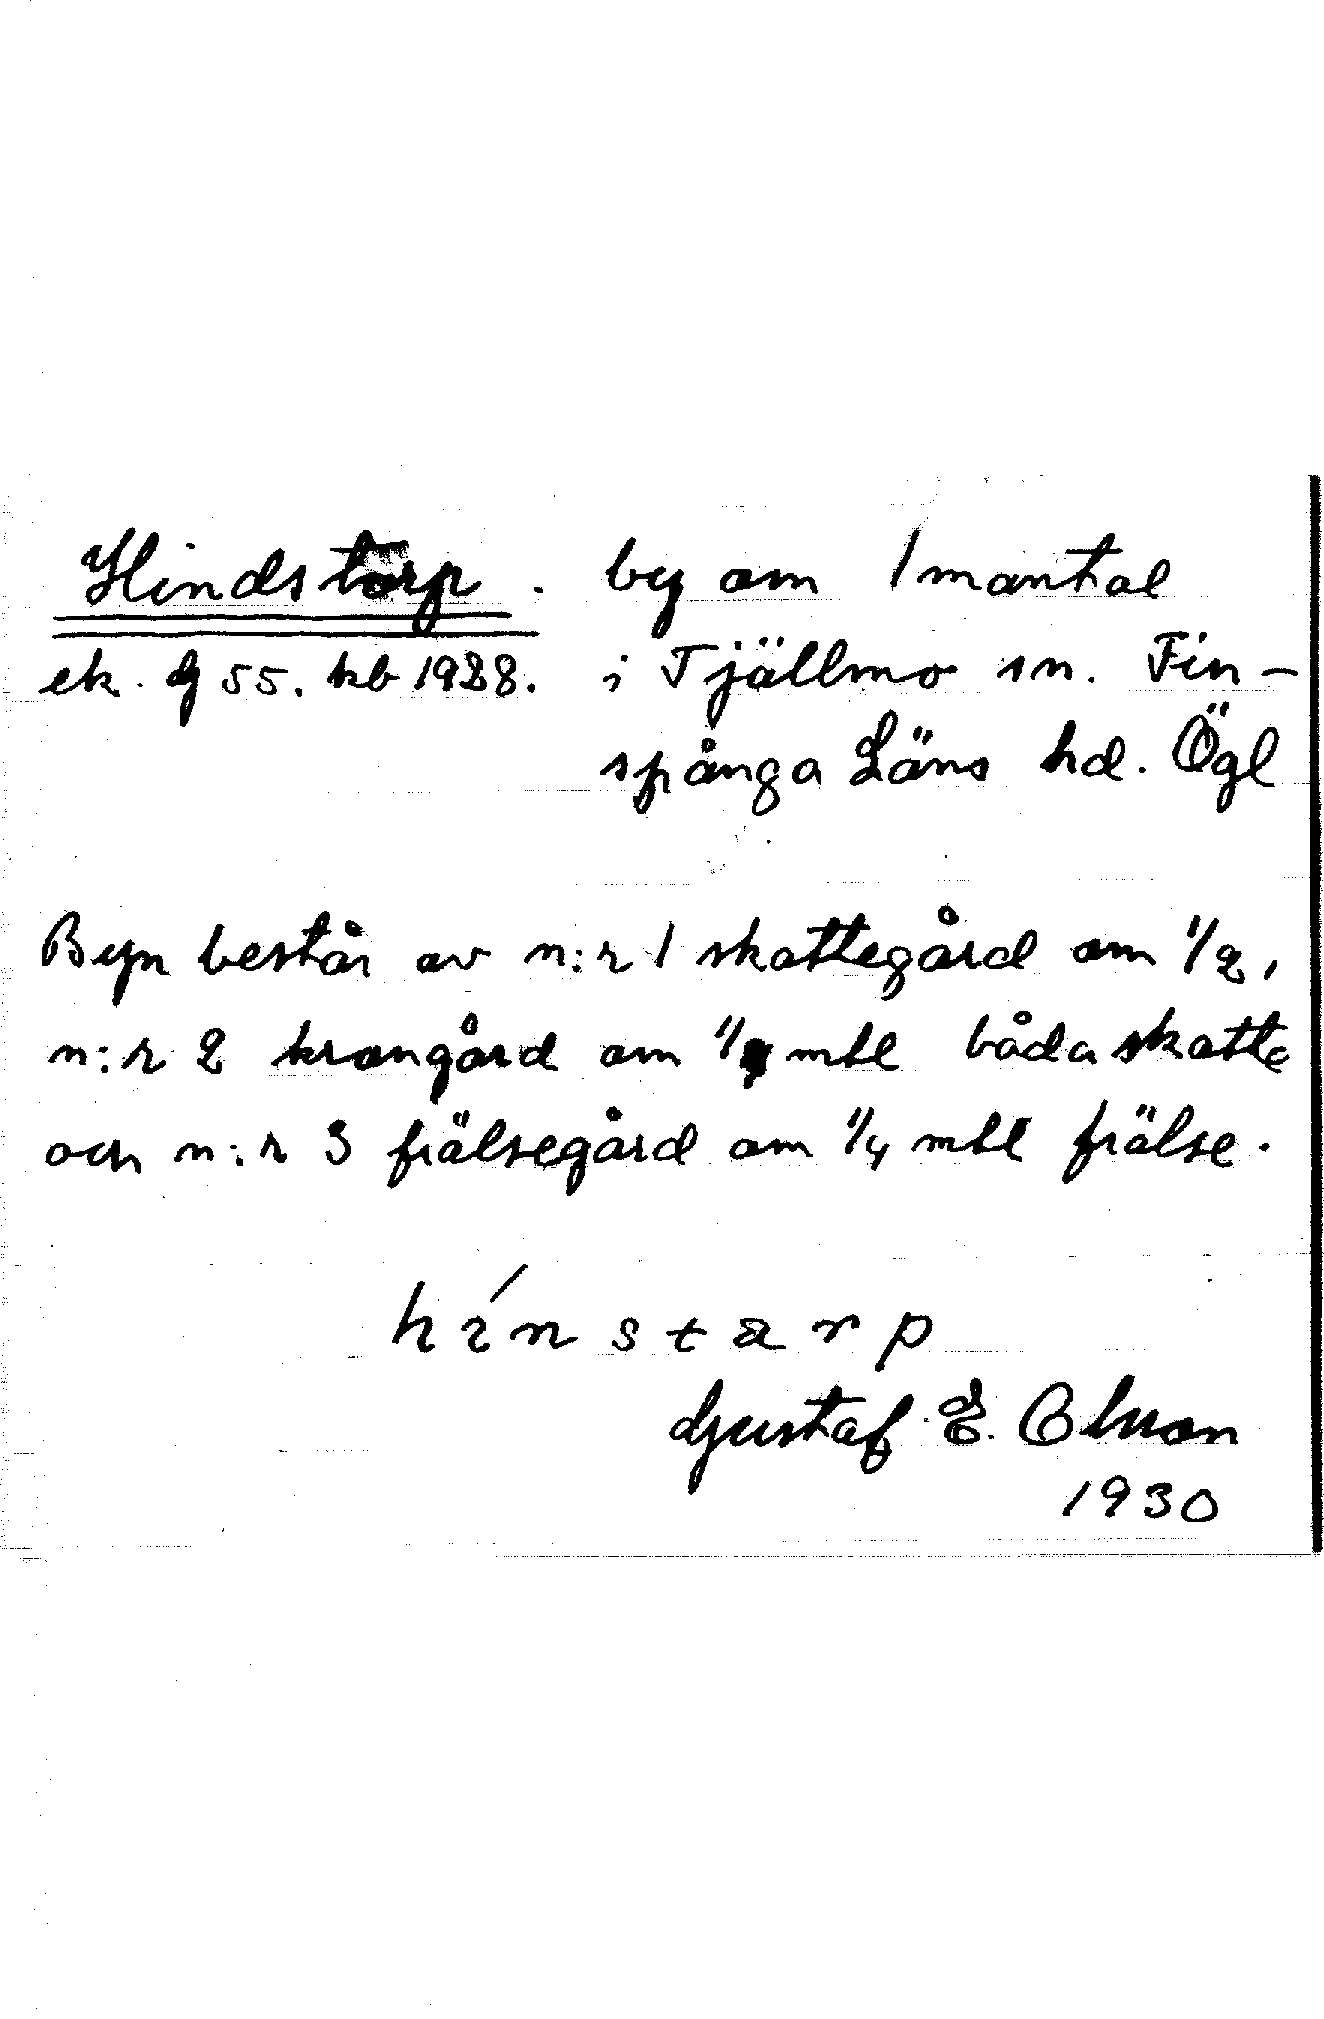 Hindstorp. by om 1 mantal
ek. G 55. kb 1928. i Tjällmo sn. Fin-
spånga Läns hd. Ögl
Byn består av n:r 1 skattegård om 1/2,
n:r 2 krongård om 1/4 mtl båda skatte
och n:r 3 frälsegård om 1/4 mtl frälse.
hinstarp
Gustaf E. Olsson
1930